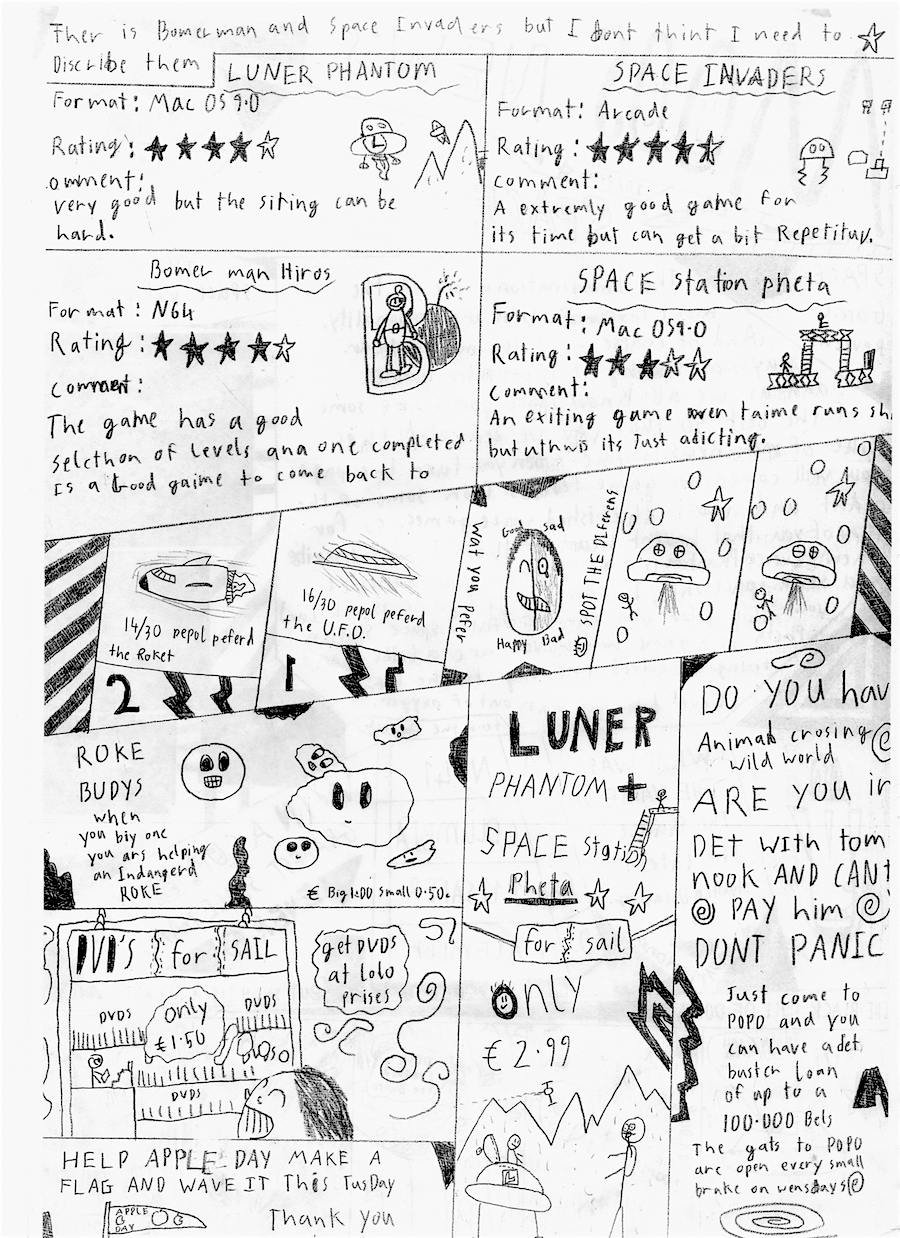 Ther is Bomerman and Space Invaders but I dont thint I need to
Discribe them
LUNER PHANTOM
Format: Mac OS 9.0
Rating:
omment:
very good but the siting can be
hard.
SPACE INVADERS
Format: Arcade
Rating:
comment:
A extremly good game for
its time but can get a bit Repetituv.
Bomer man Hiros
Format: N64
Rating:
comment:
The game has a good
selcthon of levels ana one completed
Is a Good gaime to come back to
SPACE station pheta
Format: Mac OS9.0
Rating:
Comment:
An exiting game wen taime runs sh
but uthwis its Just adicting.
14/30 pepol peferd
the Roket
2
16/30 pepol peferd
the U.F.O.
1
wat you Pefer
Good Sad
Happy Bad
SPOT THE DIFERENS
ROKE
BUDYS
when
you biy one
you ars helping
an Indangerd
ROKE
€ Big 1:00 Small 0.50c
LUNER
PHANTOM +
SPACE Station
Pheta
for sail
Only
€ 2.99
L
DO YOU hav
Animal crosing
wild world
ARE YOU in
DET with tom
nook AND CANT
PAY him
DONT PANIC
Just come to
POPO and you
can have a det
bustch loan
of up to a
100.000 Bels
The gats to POPO
are open every small
brake on wensdays
DVD'S for SAIL
DVDS
only
€1.50
DVDS
DVDS
get DVDS
at lolo
prises
HELP APPLE DAY MAKE A
FLAG AND WAVE IT This TusDay
APPLE
DAY
Thank you